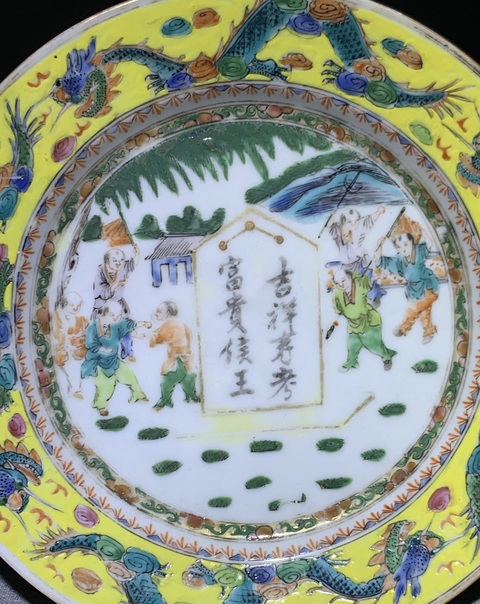 吉祥寿考
富貴侯王